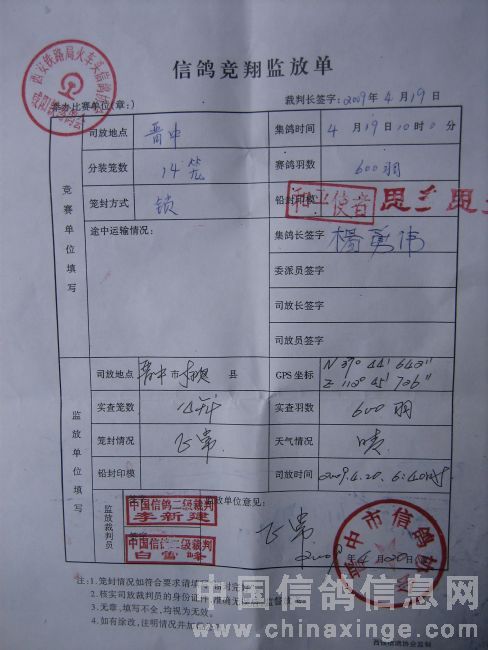 西安铁路局火车头信鸽协会
信鸽竞翔监放单
举办比赛单位(章:)
裁判长签字:2009年4月19日
竞赛单位填写
司放地点 晋中 集鸽时间 4月19日10时0分
分装笼数 14笼 赛鸽羽数 600羽
笼封方式 锁 铅封印模 和平使者
途中运输情况: 集鸽长签字 杨勇伟
委派员签字
司放长签字
司放员签字
监放单位填写
司放地点 晋中市 县 GPS坐标 N 37° 44' 643"
E 112° 45' 706"
实查笼数 实查羽数 600羽
笼封情况 正常 天气情况 晴
铅封印模 司放时间 2009.4.20. 6:40
监放裁判员
监放单位意见:
中国信鸽二级裁判
李新建
中国信鸽二级裁判
白雪峰
正常
2009年4月20日
晋中市信鸽协会
注:1.笼封情况如符合要求请填
2.核实司放裁判员的身份证件,准确无
3.无章,填写不全,均视为无效。
4.如有涂改,注明情况并加
中国信鸽信息网
www.chinaxinge.com
西安信鸽协会监制